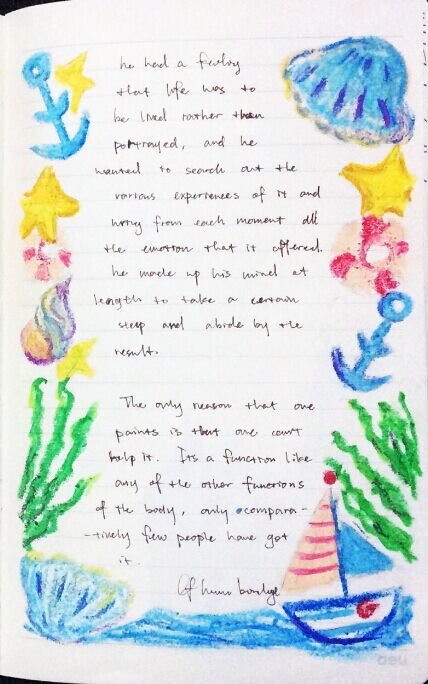 he had a feeling
that life was to
be lived rather than
portrayed, and he
wanted to search out the
various experiences of it and
wring from each moment all
the emotion that it offered.
he made up his mind at
length to take a certain
step and abide by the
result.
The only reason that one
paints is that one can't
help it. Its a function like
any of the other functions
of the body, only compara-
-tively few people have got
it.
Of human bondage